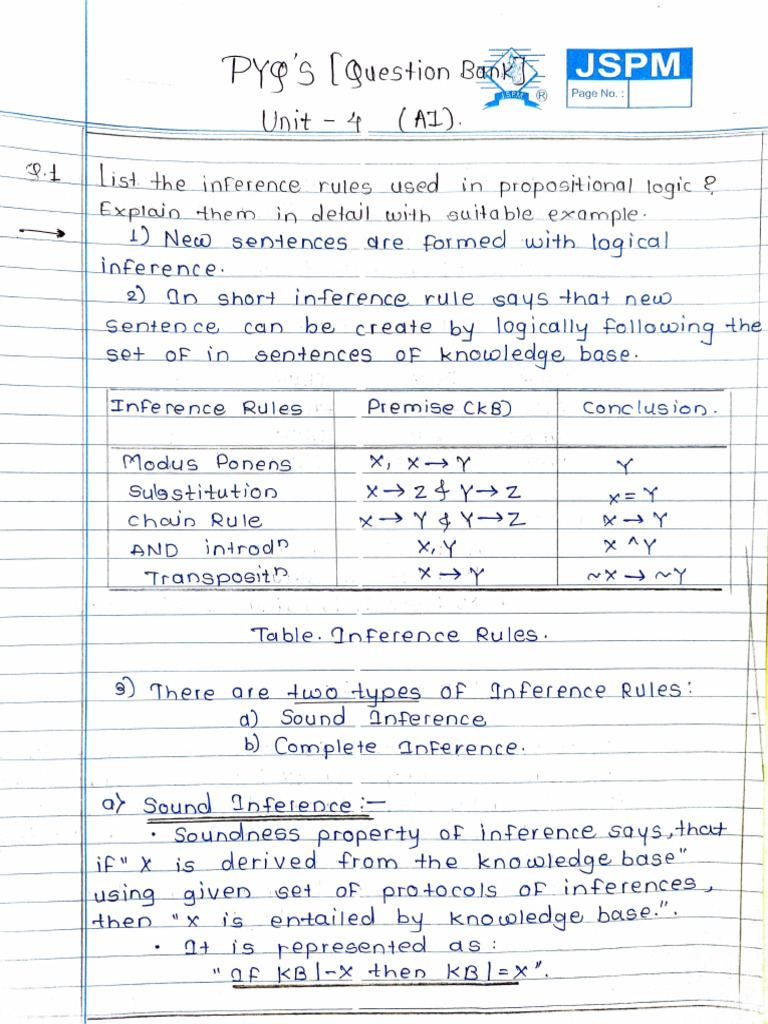 PYQ's [Question Bank]
JSPM
JSPM ®
Page No. :
Unit - 4 (AI).
Q.1 List the inference rules used in propositional logic ?
Explain them in detail with suitable example.
→ 1) New sentences are formed with logical
inference.
2) In short inference rule says that new
sentence can be create by logically following the
set of in sentences of knowledge base.
Inference Rules Premise (KB) Conclusion.
Modus Ponens X, X → Y Y
Substitution X → Z & Y → Z X = Y
Chain Rule X → Y & Y → Z X → Y
AND introdⁿ X, Y X ^ Y
Transpositⁿ X → Y ~X → ~Y
Table. Inference Rules.
3) There are two types of Inference Rules:
a) Sound Inference
b) Complete Inference.
a) Sound Inference :-
• Soundness property of inference says, that
if " X is derived from the knowledge base"
using given set of protocols of inferences,
then "X is entailed by knowledge base.".
• It is represented as :
"If KB|-X then KB|=X".